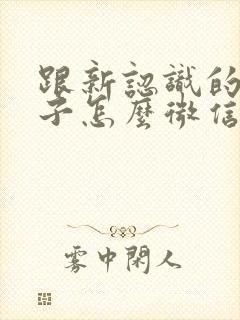 跟新認識的
子怎麼微信
雾中閑人